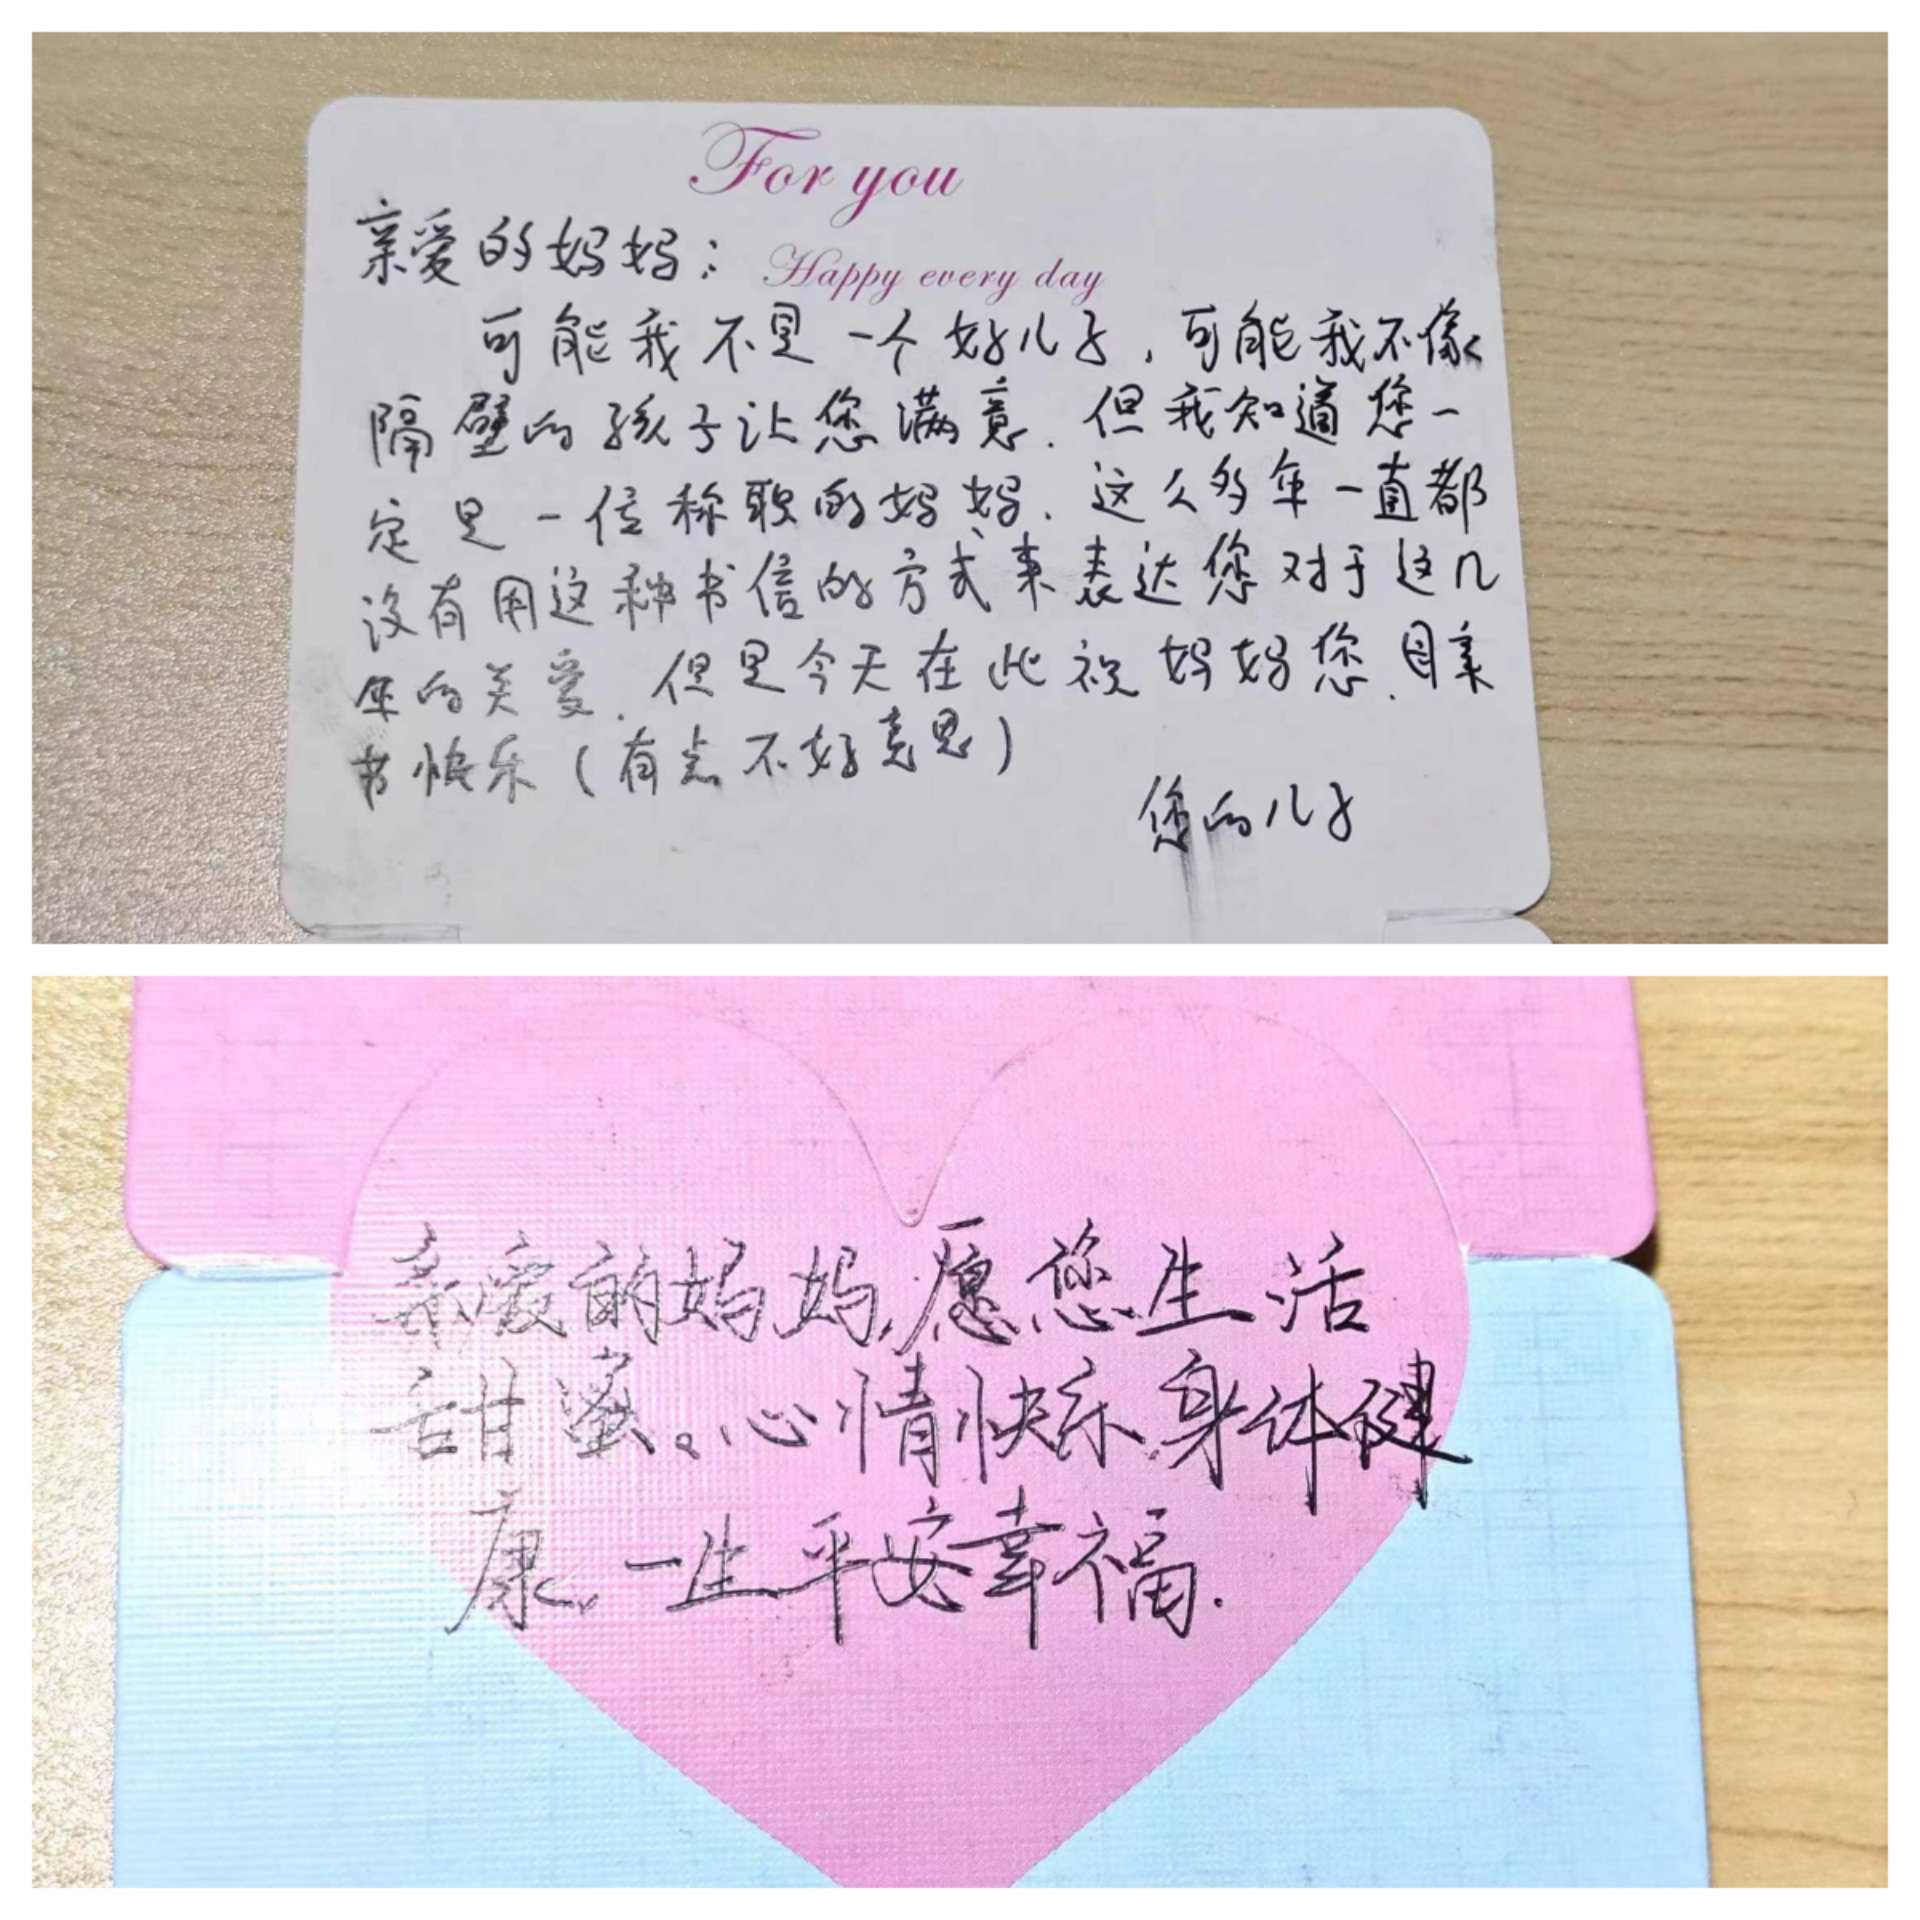 For you
亲爱的妈妈：
Happy every day
可能我不是一个好儿子，可能我不像
隔壁的孩子让您满意．但我知道您一
定是一位称职的妈妈．这么多年一直都
没有用这种书信的方式来表达您对于这几
年的关爱．但是今天在此祝妈妈您．母亲
节快乐（有点不好意思）
您的儿子
亲爱的妈妈，愿您生活
甜蜜。心情快乐．身体健
康．一生平安幸福．